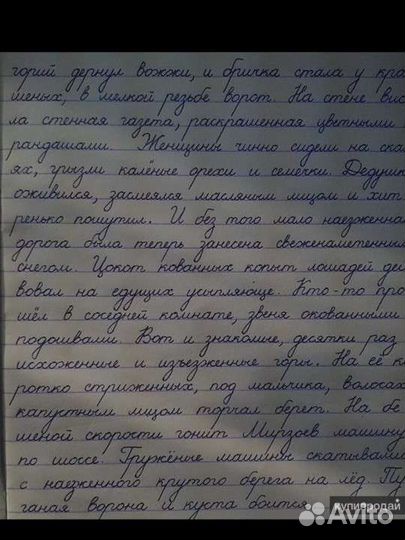 горий дернул вожжи, и бричка стала у кра
шеных, в мелкой резьбе ворот. На стене вис
ла стенная газета, раскрашенная цветными
рандашами. Женщины чинно сидели на ска
ях, грызли калёные орехи и семечки. Дедушк
оживился, засмеялся масляным лицом и хит
ренько пошутил. И без того мало наезженна
дорога была теперь занесена свеженаметенны
снегом. Цокот кованных копыт лошадей дей
вовал на едущих усыпляюще. Кто-то про
шёл в соседней комнате, звеня окованными
подошвами. Вот и знакомые, десятки раз
исхоженные и изъезженные горы. На её к
ротко стриженных, под мальчика, волосах
капустным лицом торчал берет. На бе
шеной скорости гонит Мирзоев машину
по шоссе. Гружёные машины скатывали
с наезженного крутого берега на лёд. Пу
ганая ворона и куста боится.
купипродай
Avito